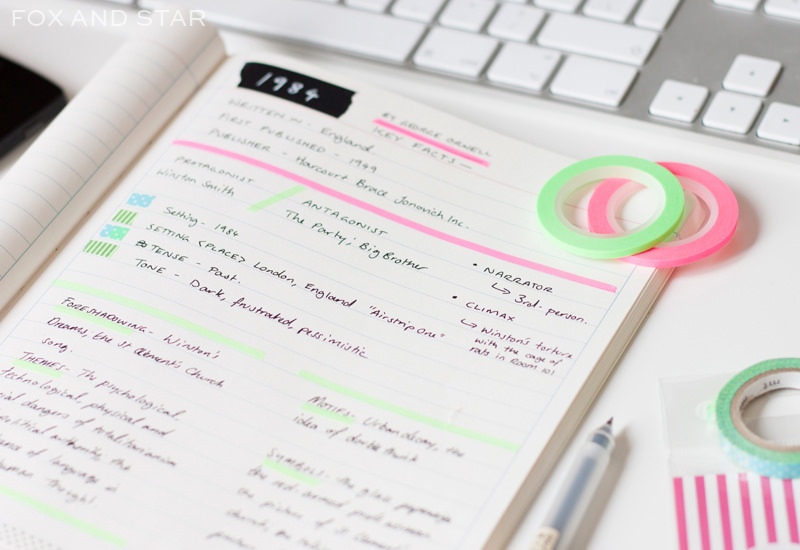 FOX AND STAR
1984
BY GEORGE ORWELL
KEY FACTS —
WRITTEN IN - England
FIRST PUBLISHED - 1949
PUBLISHER - Harcourt Brace Jonovich Inc.
PROTAGONIST
Winston Smith
ANTAGONIST
The Party; Big Brother
Setting - 1984
SETTING (PLACE) London, England "Airstrip One"
TENSE - Past.
TONE - Dark, frustrated, pessimistic
• NARRATOR
↳ 3rd person.
• CLIMAX
↳ Winston's torture
with the cage of
rats in Room 101
FORESHADOWING - Winston's
Dreams, the St Clement's Church
song.
THEMES - The psychological,
technological, physical and
social dangers of totalitarianism
authority, the
of language
thought.
MOTIFS - Urban decay, the
idea of doublethink
SYMBOLS - The glass paperweight
the red-armed prole woman,
the picture of St Clement's